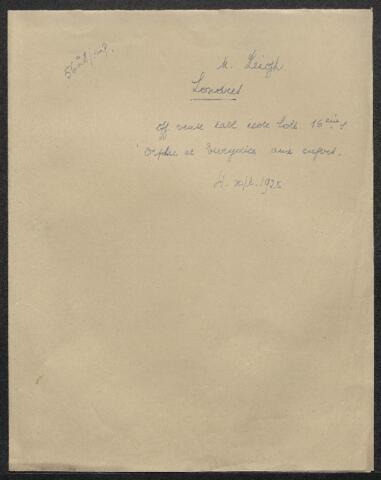 M. Leigh
Londres
off vente tabl école holl. 16ème s
Orphée et Eurydice aux enfers.
sept. 1925